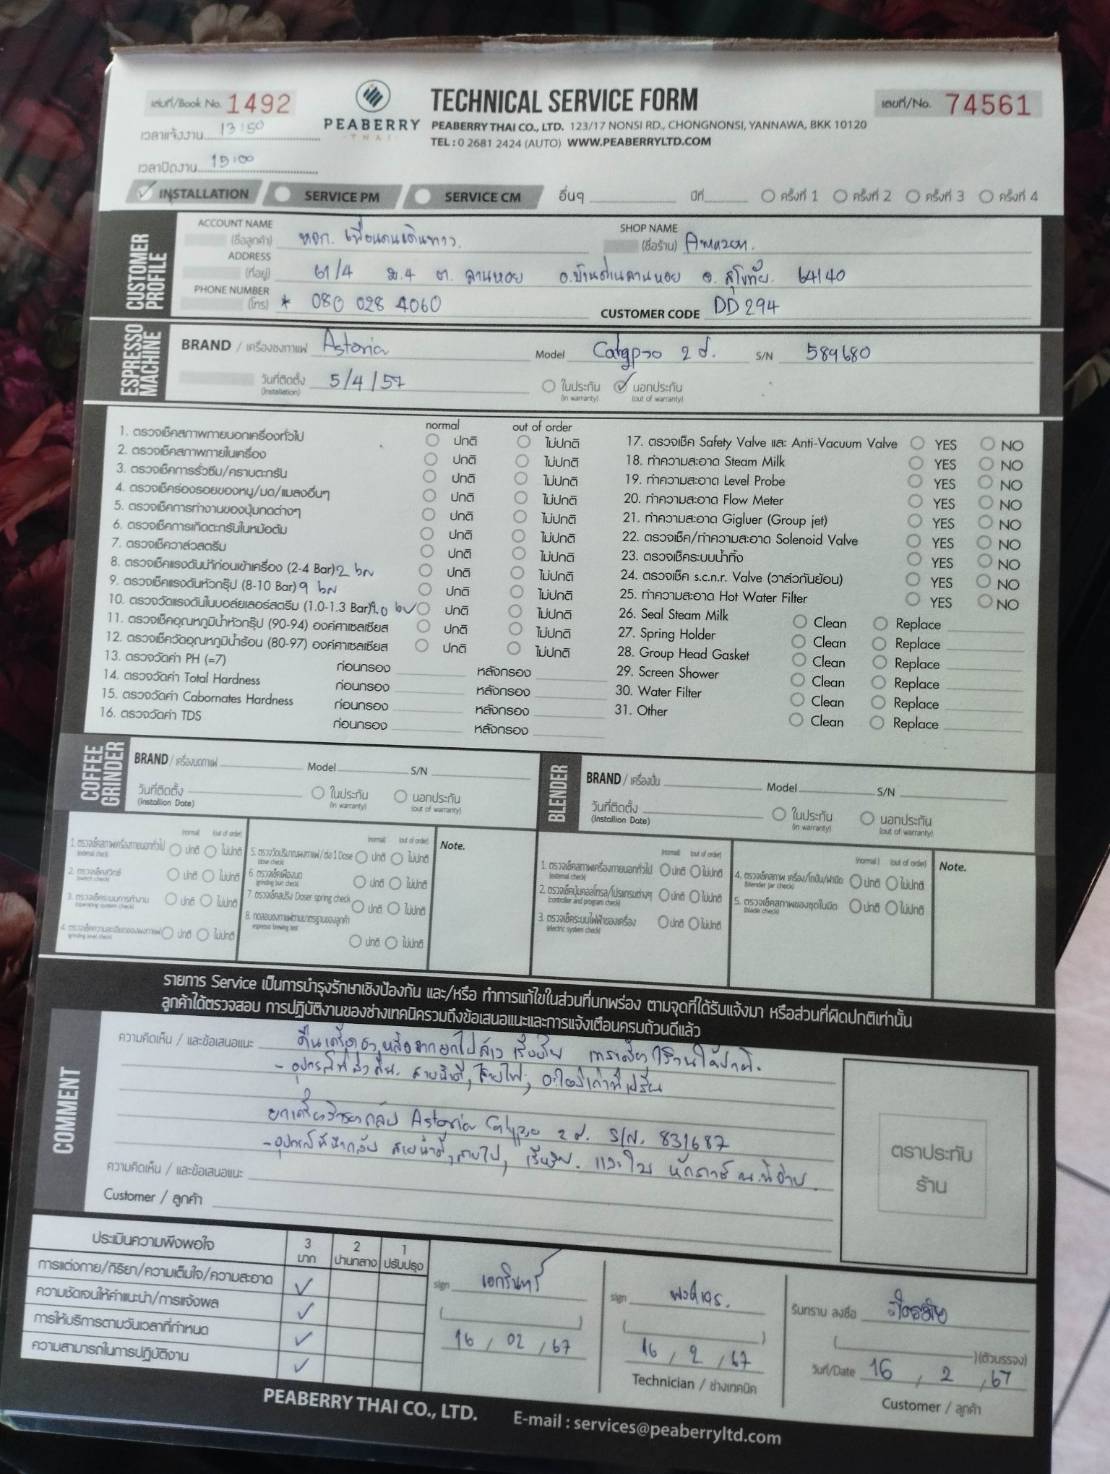 เล่มที่/Book No. 1492
PEABERRY
THAI
TECHNICAL SERVICE FORM
เลขที่/No. 74561
PEABERRY THAI CO., LTD. 123/17 NONSI RD., CHONGNONSI, YANNAWA, BKK 10120
TEL : 0 2681 2424 (AUTO) WWW.PEABERRYLTD.COM
เวลาแจ้งงาน 13:50
เวลาปิดงาน 15:00
INSTALLATION SERVICE PM SERVICE CM อื่นๆ ปีที่ ครั้งที่ 1 ครั้งที่ 2 ครั้งที่ 3 ครั้งที่ 4
CUSTOMER PROFILE
ACCOUNT NAME (ชื่อลูกค้า) หจก. เพื่อนคนเดินทาง
SHOP NAME (ชื่อร้าน) Amazon.
ADDRESS (ที่อยู่) 61/4 ม.4 ต. ลานหอย อ.บ้านด่านลานหอย จ. สุโขทัย. 64140
PHONE NUMBER (โทร) * 080 028 4060
CUSTOMER CODE DD 294
ESPRESSO MACHINE
BRAND / เครื่องชงกาแฟ Astoria Model Calypso 2 S/N 589680
วันที่ติดตั้ง (Installation) 5/4/57 ในประกัน (in warranty) นอกประกัน (out of warranty)
normal out of order
1. ตรวจเช็คสภาพภายนอกเครื่องทั่วไป ปกติ ไม่ปกติ
2. ตรวจเช็คสภาพภายในเครื่อง ปกติ ไม่ปกติ
3. ตรวจเช็คการรั่วซึม/คราบตะกรัน ปกติ ไม่ปกติ
4. ตรวจเช็คร่องรอยของหนู/มด/แมลงอื่นๆ ปกติ ไม่ปกติ
5. ตรวจเช็คการทำงานของปุ่มกดต่างๆ ปกติ ไม่ปกติ
6. ตรวจเช็คการเกิดตะกรันในหม้อต้ม ปกติ ไม่ปกติ
7. ตรวจเช็ควาล์วสตรีม ปกติ ไม่ปกติ
8. ตรวจเช็คแรงดันน้ำก่อนเข้าเครื่อง (2-4 Bar) 2 ปกติ ไม่ปกติ
9. ตรวจเช็คแรงดันหัวกรุ๊ป (8-10 Bar) 9 ปกติ ไม่ปกติ
10. ตรวจวัดแรงดันในบอยล์เลอร์สตรีม (1.0-1.3 Bar) 1.0 ปกติ ไม่ปกติ
11. ตรวจเช็คอุณหภูมิน้ำหัวกรุ๊ป (90-94) องศาเซลเซียส ปกติ ไม่ปกติ
12. ตรวจเช็ควัดอุณหภูมิน้ำร้อน (80-97) องศาเซลเซียส ปกติ ไม่ปกติ
13. ตรวจวัดค่า PH (=7) ก่อนกรอง หลังกรอง
14. ตรวจวัดค่า Total Hardness ก่อนกรอง หลังกรอง
15. ตรวจวัดค่า Cabornates Hardness ก่อนกรอง หลังกรอง
16. ตรวจวัดค่า TDS ก่อนกรอง หลังกรอง
17. ตรวจเช็ค Safety Valve และ Anti-Vacuum Valve YES NO
18. ทำความสะอาด Steam Milk YES NO
19. ทำความสะอาด Level Probe YES NO
20. ทำความสะอาด Flow Meter YES NO
21. ทำความสะอาด Gigluer (Group jet) YES NO
22. ตรวจเช็ค/ทำความสะอาด Solenoid Valve YES NO
23. ตรวจเช็คระบบน้ำทิ้ง YES NO
24. ตรวจเช็ค s.c.n.r. Valve (วาล์วกันย้อน) YES NO
25. ทำความสะอาด Hot Water Filter YES NO
26. Seal Steam Milk Clean Replace
27. Spring Holder Clean Replace
28. Group Head Gasket Clean Replace
29. Screen Shower Clean Replace
30. Water Filter Clean Replace
31. Other Clean Replace
COFFEE GRINDER
BRAND / เครื่องบดกาแฟ Model S/N
วันที่ติดตั้ง (Installion Date) ในประกัน (in warranty) นอกประกัน (out of warranty)
(normal) (out of order) (normal) (out of order)
1. ตรวจเช็คสภาพเครื่องภายนอกทั่วไป (external check) ปกติ ไม่ปกติ
2. ตรวจเช็คสวิทซ์ (switch check) ปกติ ไม่ปกติ
3. ตรวจเช็คระบบการทำงาน (operating system check) ปกติ ไม่ปกติ
4. ตรวจเช็คความละเอียดของผงกาแฟ (grinding level check) ปกติ ไม่ปกติ
5. ตรวจวัดปริมาณผงกาแฟ/ต่อ 1 Dose (dose check) ปกติ ไม่ปกติ
6. ตรวจเช็คเฟืองบด (grinding burr check) ปกติ ไม่ปกติ
7. ตรวจเช็คสปริง Doser (Doser spring check) ปกติ ไม่ปกติ
8. ทดสอบชงกาแฟตามมาตรฐานของลูกค้า (espresso brewing test) ปกติ ไม่ปกติ
Note.
BLENDER
BRAND / เครื่องปั่น Model S/N
วันที่ติดตั้ง (Installion Date) ในประกัน (in warranty) นอกประกัน (out of warranty)
(normal) (out of order) (normal) (out of order)
1. ตรวจเช็คสภาพเครื่องภายนอกทั่วไป (external check) ปกติ ไม่ปกติ
2. ตรวจเช็คปุ่มคอลโทรล/โปรแกรมต่างๆ (controller and program check) ปกติ ไม่ปกติ
3. ตรวจเช็คระบบไฟฟ้าของเครื่อง (electric system check) ปกติ ไม่ปกติ
4. ตรวจเช็คสภาพ เครื่อง/โถปั่น/ฝาปิด (Blender jar check) ปกติ ไม่ปกติ
5. ตรวจเช็คสภาพของชุดใบมีด (blade check) ปกติ ไม่ปกติ
Note.
รายการ Service เป็นการบำรุงรักษาเชิงป้องกัน และ/หรือ ทำการแก้ไขในส่วนที่บกพร่อง ตามจุดที่ได้รับแจ้งมา หรือส่วนที่ผิดปกติเท่านั้น
ลูกค้าได้ตรวจสอบ การปฏิบัติงานของช่างเทคนิครวมถึงข้อเสนอแนะและการแจ้งเตือนครบถ้วนดีแล้ว
COMMENT
ความคิดเห็น / และข้อเสนอแนะ คืนเครื่อง หลังจาก
- อุปกรณ์ที่ส่งคืน. สายน้ำดี, สายไฟ,
ยกเครื่องสำรองกลับ Astoria Calypso 2 S/N. 831687
- อุปกรณ์ที่นำกลับ สายน้ำดี, สายไฟ,
ความคิดเห็น / และข้อเสนอแนะ
Customer / ลูกค้า
ตราประทับ
ร้าน
ประเมินความพึงพอใจ 3 มาก 2 ปานกลาง 1 ปรับปรุง
การแต่งกาย/กิริยา/ความเต็มใจ/ความสะอาด ✓
ความชัดเจนให้คำแนะนำ/การแจ้งผล ✓
การให้บริการตามวันเวลาที่กำหนด ✓
ความสามารถในการปฏิบัติงาน ✓
sign เอกรินทร์
16 / 02 / 67
sign
16 / 2 / 67
Technician / ช่างเทคนิค
รับทราบ ลงชื่อ
(ตัวบรรจง)
วันที่/Date 16 / 2 / 67
Customer / ลูกค้า
PEABERRY THAI CO., LTD. E-mail : services@peaberryltd.com